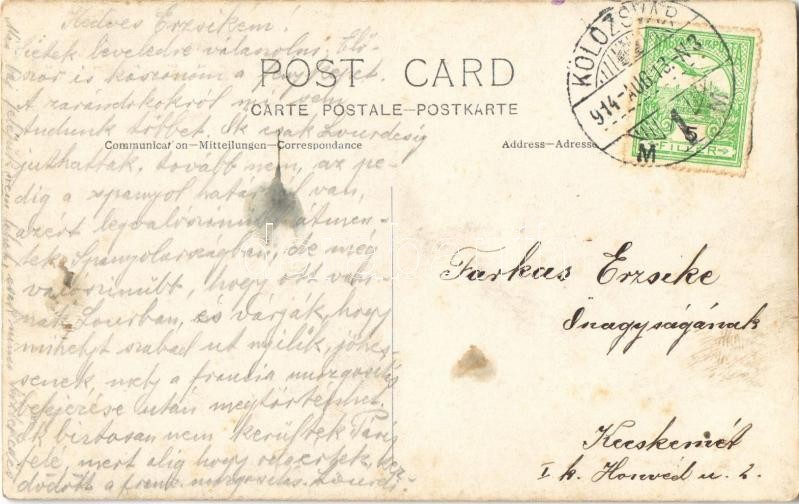 Kedves Erzsikém!
Sietek leveledre válaszolni. Elő-
ször is köszönöm a
A zarándokokról még sem
tudunk többet. Ők csak Lourdesig
juthattak, tovább nem, az pe-
dig a spanyol határnál van,
azért legvalószinűbb átmen-
tek Spanyolországban, de még
valószinűbb, hogy ott van-
nak Lourdban, és várják, hogy
mihelyt szabad ut nyilik, jöhes-
senek, mely a francia mozgositás
befejezése után megtörténhet.
Ők biztosan nem kerültek Páris
fele, mert alig hogy odaértek, kez-
dődött a franc. mozgositás.
POST CARD
CARTE POSTALE—POSTKARTE
Communicat on—Mitteilungen—Correspondance
Address—Adresse
KOLOZSVÁR
914-AUG.13.
M
5
FILLÉR
Farkas Erzsike
Őnagyságának
Kecskemét
I k. Honvéd u. 2.